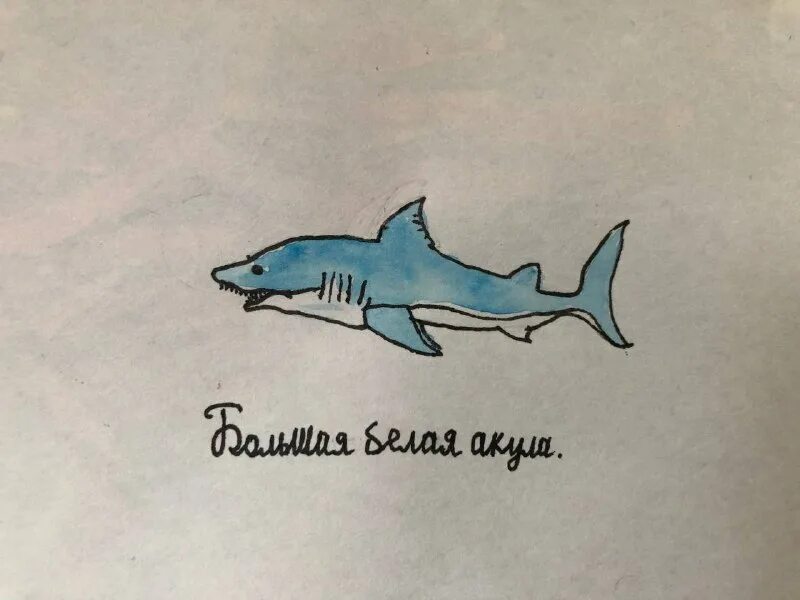 Большая белая акула.